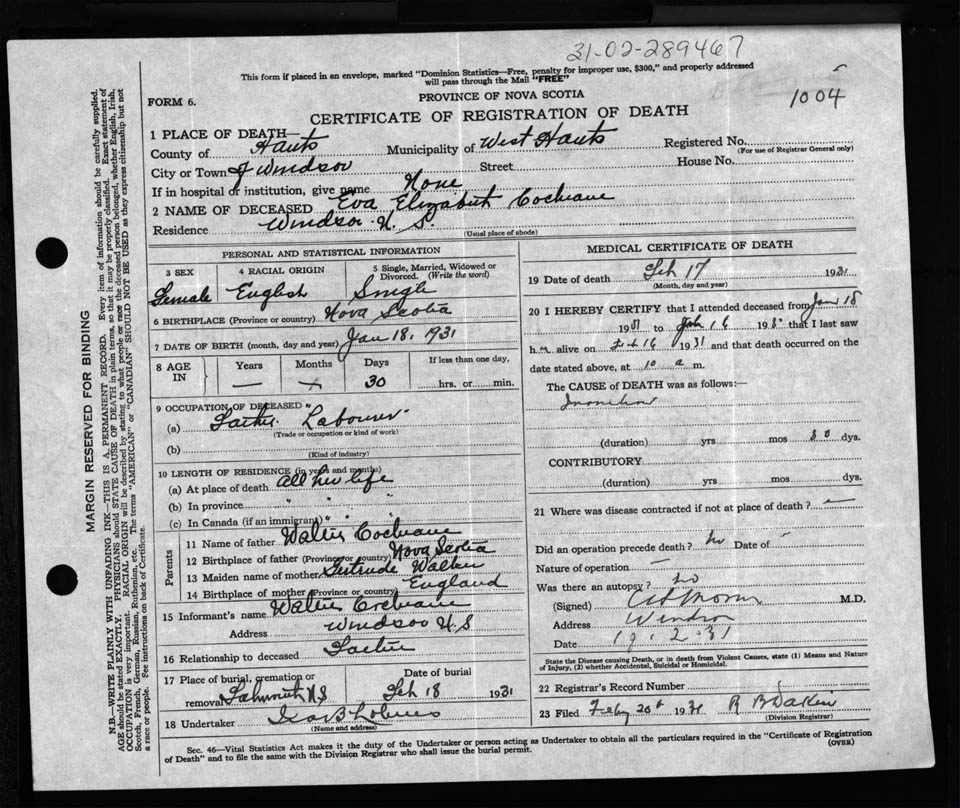 31-02-289467
This form if placed in an envelope, marked "Dominion Statistics—Free, penalty for improper use, $300," and properly addressed
will pass through the Mail "FREE"
1004
FORM 6.
PROVINCE OF NOVA SCOTIA
CERTIFICATE OF REGISTRATION OF DEATH
1 PLACE OF DEATH—
County of Hants Municipality of West Hants Registered No.
(For use of Registrar General only)
City or Town of Windsor Street House No.
If in hospital or institution, give name None
2 NAME OF DECEASED Eva Elizabeth Cochrane
Residence Windsor N. S.
(Usual place of abode)
PERSONAL AND STATISTICAL INFORMATION
3 SEX 4 RACIAL ORIGIN 5 Single, Married, Widowed or Divorced. (Write the word)
Female English Single
6 BIRTHPLACE (Province or country) Nova Scotia
7 DATE OF BIRTH (month, day and year) Jan 18, 1931
8 AGE IN Years Months Days If less than one day,
30 hrs. or min.
9 OCCUPATION OF DECEASED
(a) Father Labourer
(Trade or occupation or kind of work)
(b)
(Kind of industry)
10 LENGTH OF RESIDENCE (in years and months)
(a) At place of death All her life
(b) In province " " "
(c) In Canada (if an immigrant) " " "
Parents
11 Name of father Walter Cochrane
12 Birthplace of father (Province or country) Nova Scotia
13 Maiden name of mother Gertrude Walker
14 Birthplace of mother (Province or country) England
15 Informant's name Walter Cochrane
Address Windsor N.S
16 Relationship to deceased Father
17 Place of burial, cremation or removal Falmouth N.S Date of burial Feb 18 1931
18 Undertaker Ira B Lohnes
(Name and address)
MEDICAL CERTIFICATE OF DEATH
19 Date of death Feb 17 1931
(Month, day and year)
20 I HEREBY CERTIFY that I attended deceased from Jan 18
1931 to Feb 16 193 that I last saw
h alive on Feb 16 1931 and that death occurred on the
date stated above, at 10 a m.
The CAUSE of DEATH was as follows:—
(duration) yrs mos 30 dys.
CONTRIBUTORY
(duration) yrs mos dys.
21 Where was disease contracted if not at place of death? —
Did an operation precede death? No Date of —
Nature of operation —
Was there an autopsy? No
(Signed) M.D.
Address Windsor
Date 19.2.31
State the Disease causing Death, or in death from Violent Causes, state (1) Means and Nature of Injury, (2) whether Accidental, Suicidal or Homicidal.
22 Registrar's Record Number
23 Filed Feby 20th 1931 R B Dakin
(Division Registrar)
Sec. 46—Vital Statistics Act makes it the duty of the Undertaker or person acting as Undertaker to obtain all the particulars required in the "Certificate of Registration
of Death" and to file the same with the Division Registrar who shall issue the burial permit.
(OVER)
MARGIN RESERVED FOR BINDING
N.B.—WRITE PLAINLY WITH UNFADING INK—THIS IS A PERMANENT RECORD. Every item of information should be carefully supplied.
AGE should be stated EXACTLY. PHYSICIANS should STATE CAUSE OF DEATH in plain terms, so that it may be properly classified. Exact statement of
OCCUPATION is very important. RACIAL ORIGIN will be described by stating to what people or race the deceased person belonged, whether English, Irish,
Scotch, French, German, Russian, Ruthenian, etc. The terms "AMERICAN" or "CANADIAN" SHOULD NOT BE USED as they express citizenship but not
a race or people. See instructions on back of Certificate.